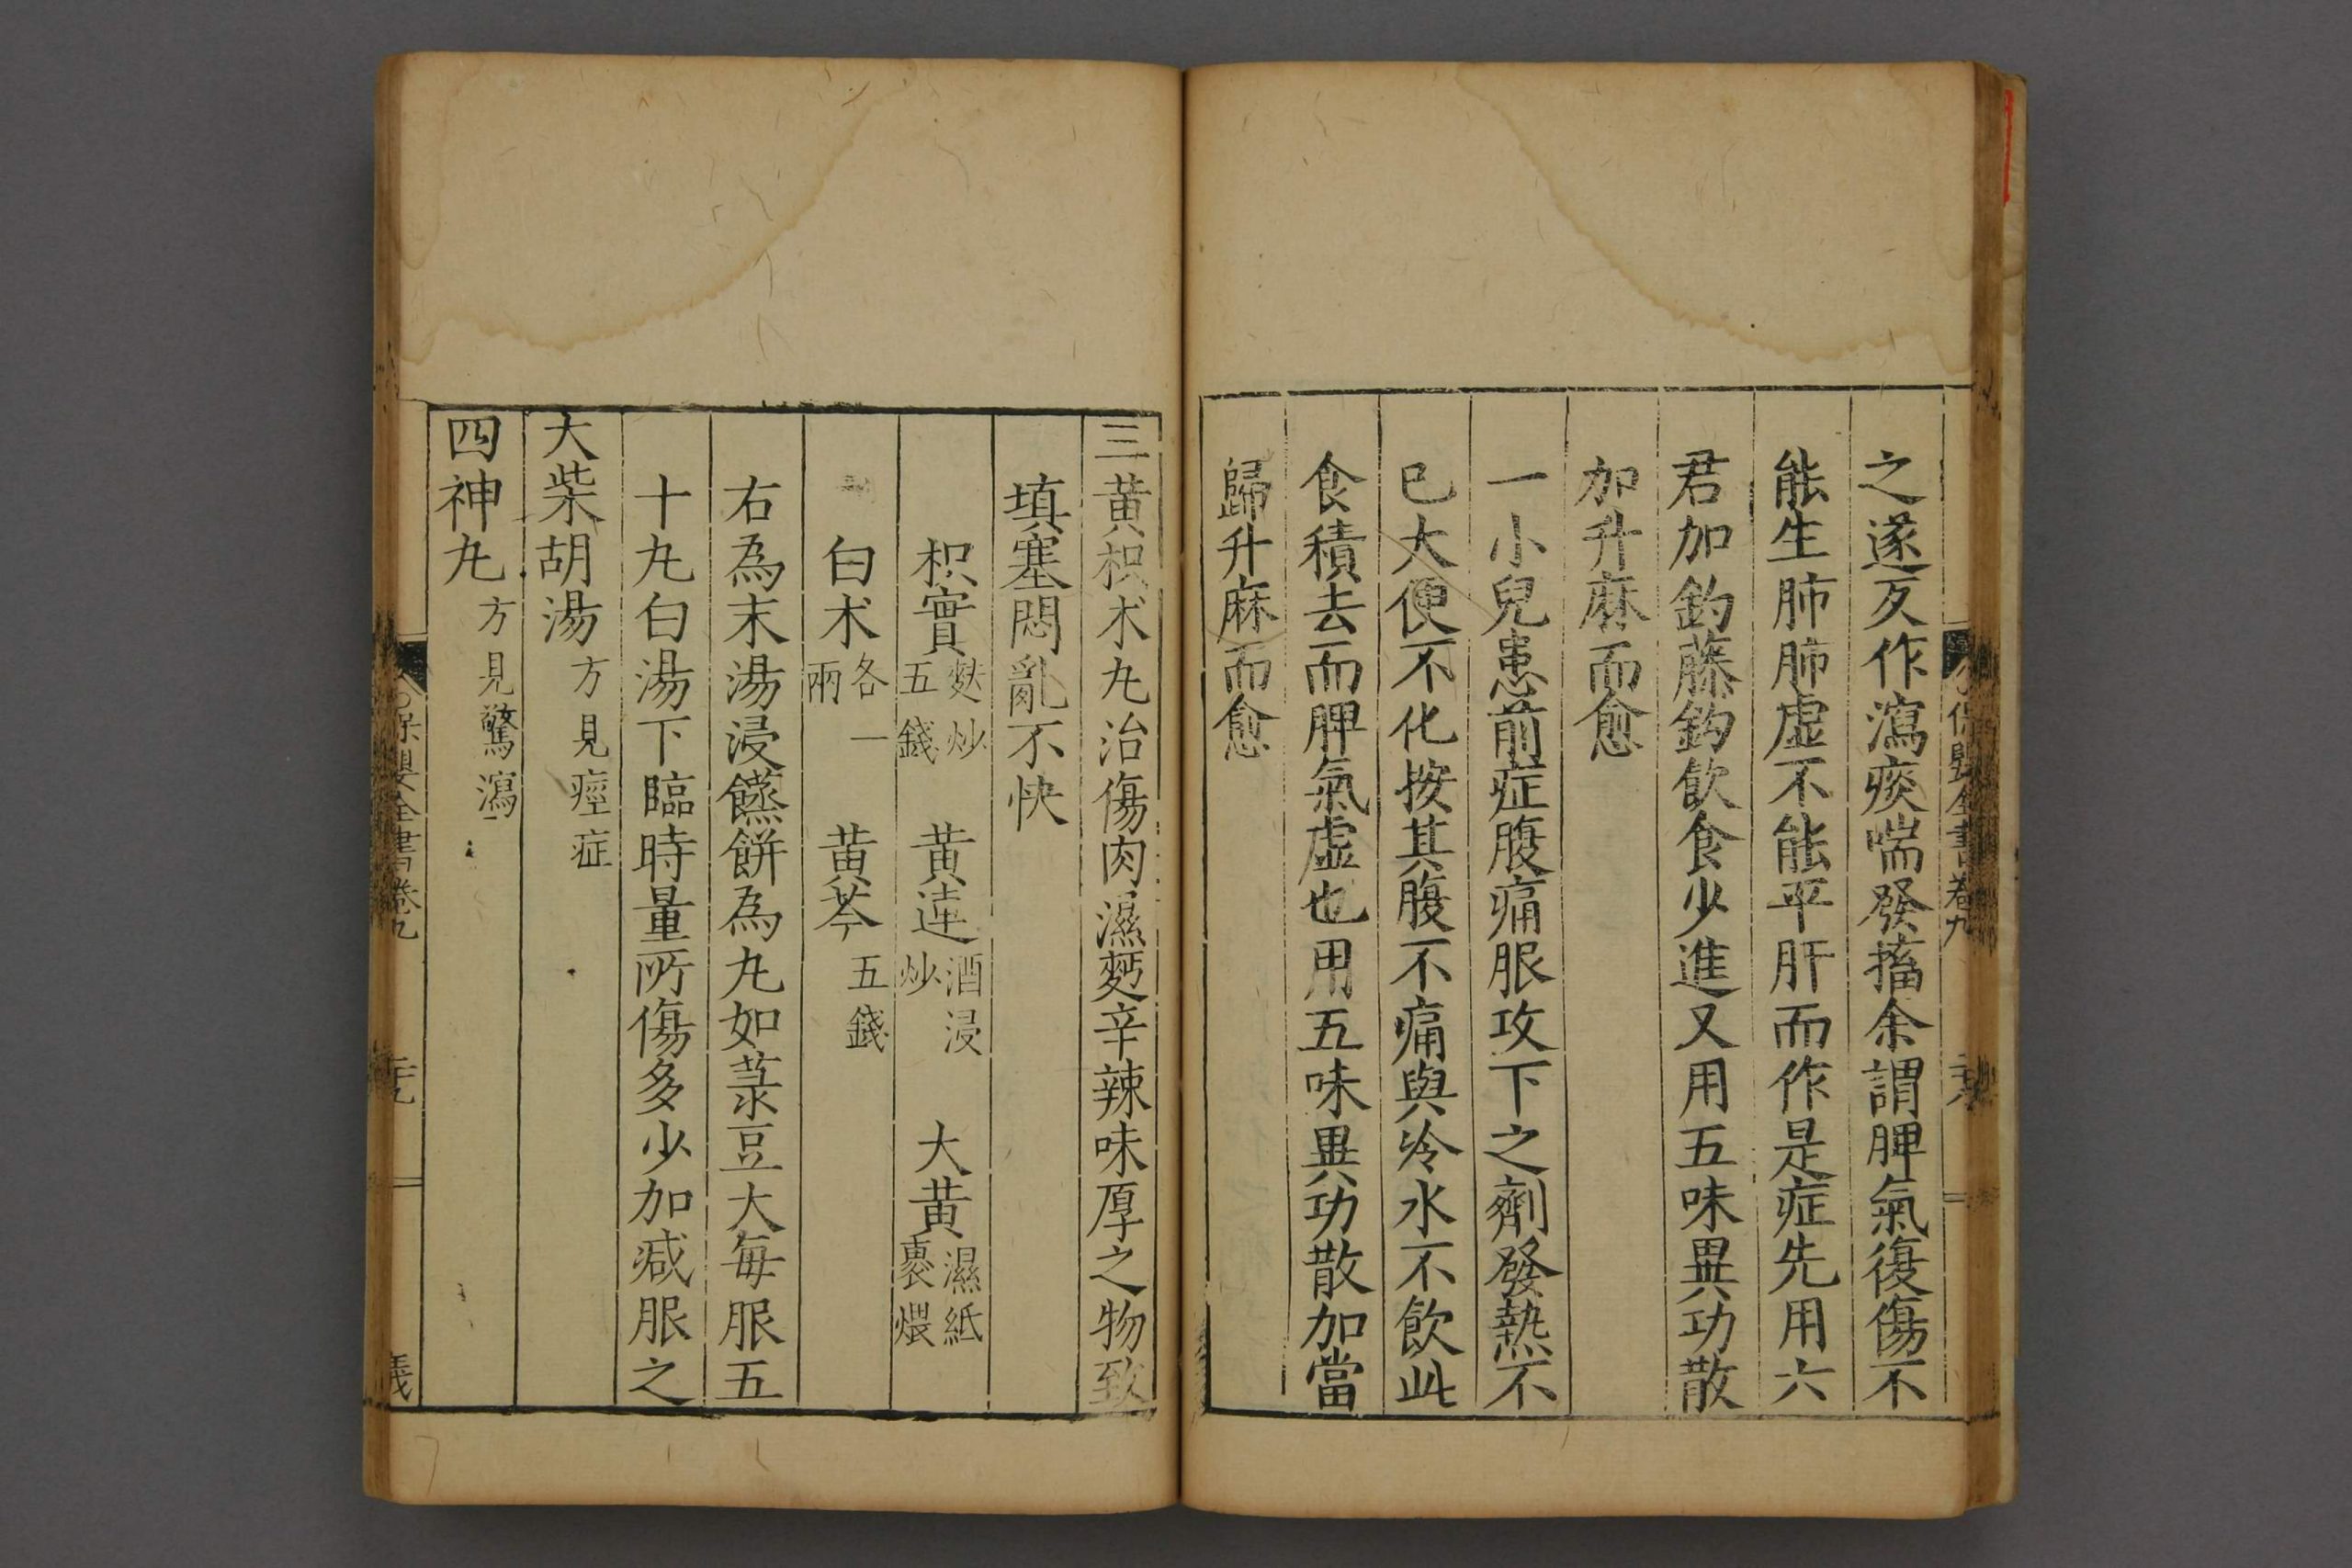 之遂反作瀉痰喘發搐余謂脾氣復傷不
能生肺肺虛不能平肝而作是症先用六
君加鈎藤鈎飲食少進又用五味異功散
加升麻而愈
一小兒患前症腹痛服攻下之劑發熱不
已大便不化按其腹不痛與冷水不飲此
食積去而脾氣虛也用五味異功散加當
歸升麻而愈
三黄枳朮丸治傷肉濕麪辛辣味厚之物致
填塞悶亂不快
枳實麩炒五錢 黄連酒浸炒 大黄濕紙裹煨
白朮各一兩 黄芩五錢
右為末湯浸饝餅為丸如菉豆大每服五
十丸白湯下臨時量所傷多少加减服之
大柴胡湯方見痙症
四神丸方見驚瀉
保嬰全書卷九